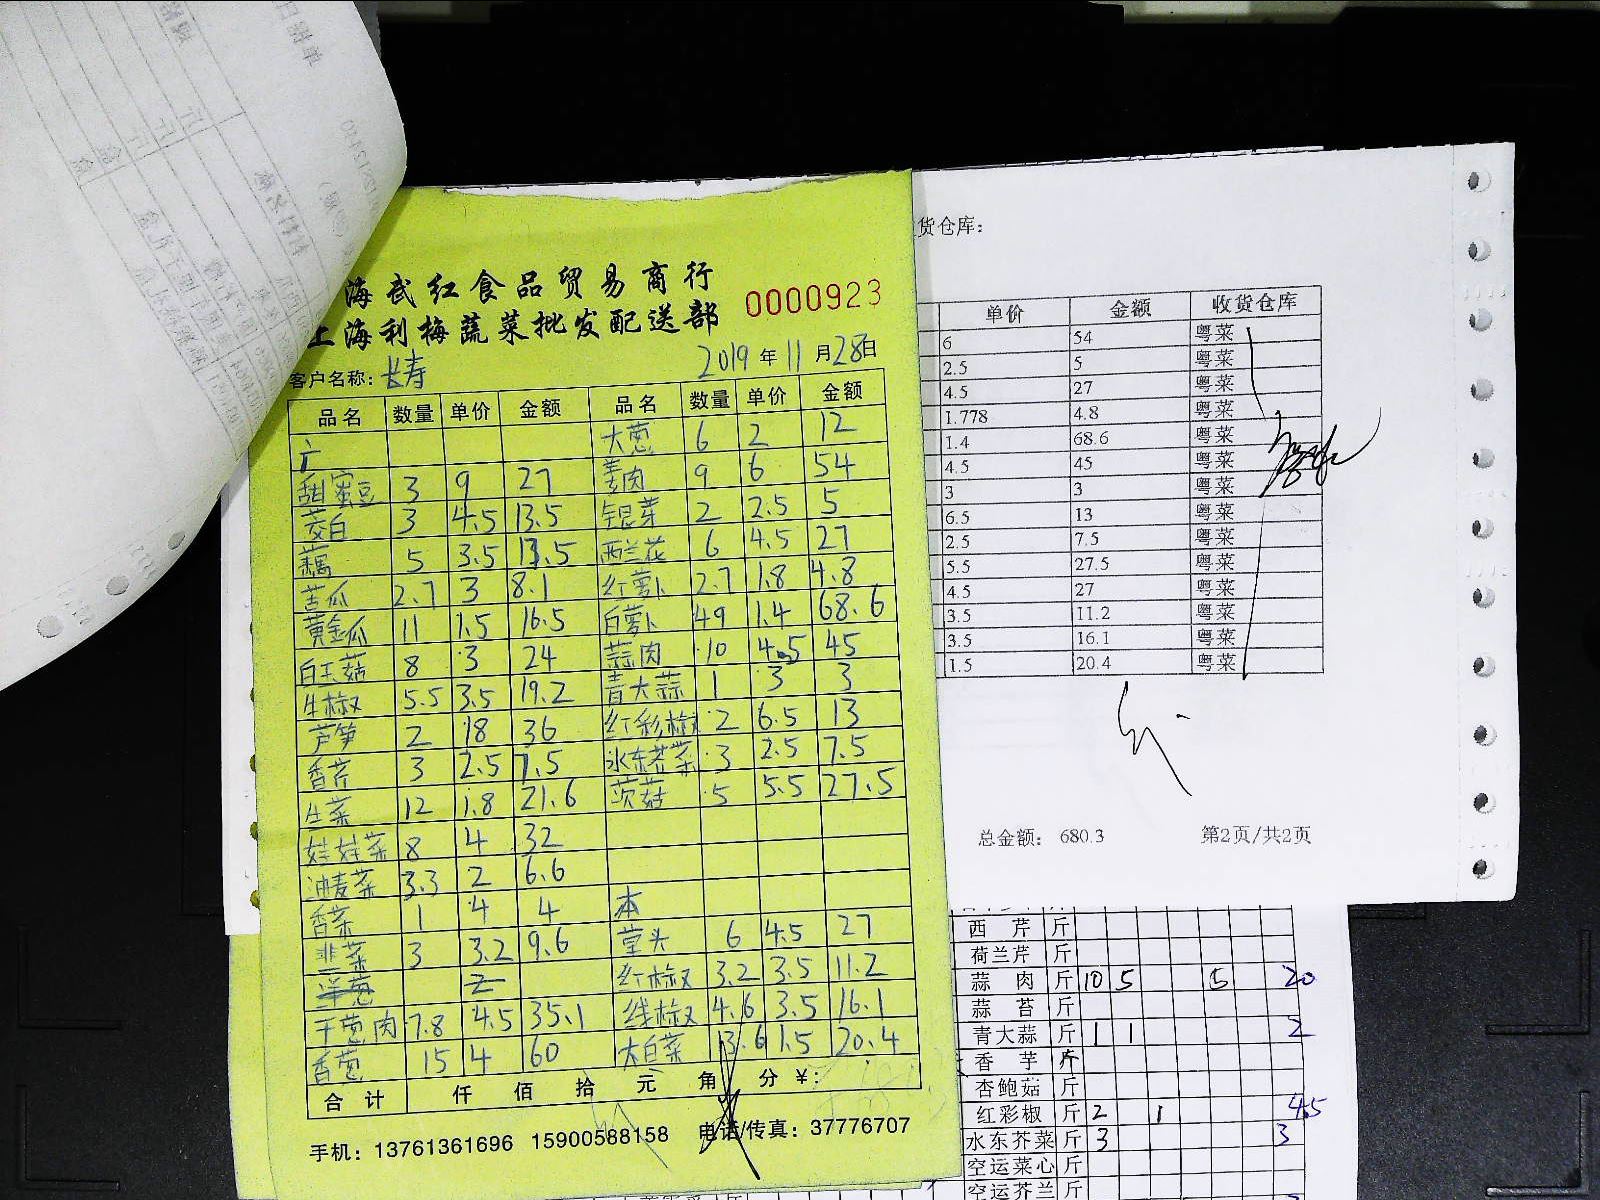 海武红食品贸易商行
上海利梅蔬菜批发配送部
0000923
客户名称：长寿 2019年11月28日
品名 数量 单价 金额 品名 数量 单价 金额
广 大葱 6 2 12
甜蜜豆 3 9 27 姜肉 9 6 54
茭白 3 4.5 13.5 银芽 2 2.5 5
藕 5 3.5 17.5 西兰花 6 4.5 27
苦瓜 2.7 3 8.1 红萝卜 2.7 1.8 4.8
黄金瓜 11 1.5 16.5 白萝卜 49 1.4 68.6
白玉菇 8 3 24 蒜肉 10 4.5 45
牛椒 5.5 3.5 19.2 青大蒜 1 3 3
芦笋 2 18 36 红彩椒 2 6.5 13
香芹 3 2.5 7.5 水东芥菜 3 2.5 7.5
生菜 12 1.8 21.6 茨菇 5 5.5 27.5
娃娃菜 8 4 32
油麦菜 3.3 2 6.6
香菜 1 4 4 本
韭菜 3 3.2 9.6 堂头 6 4.5 27
洋葱 2 红椒 3.2 3.5 11.2
干葱肉 7.8 4.5 35.1 线椒 4.6 3.5 16.1
香葱 15 4 60 大白菜 13.6 1.5 20.4
合计 仟 佰 拾 元 角 分 ¥:
手机：13761361696 15900588158 电话/传真：37776707
货仓库：
单价 金额 收货仓库
6 54 粤菜
2.5 5 粤菜
4.5 27 粤菜
1.778 4.8 粤菜
1.4 68.6 粤菜
4.5 45 粤菜
3 3 粤菜
6.5 13 粤菜
2.5 7.5 粤菜
5.5 27.5 粤菜
4.5 27 粤菜
3.5 11.2 粤菜
3.5 16.1 粤菜
1.5 20.4 粤菜
总金额： 680.3 第2页/共2页
西芹 斤
荷兰芹 斤
蒜肉 斤 10 5 5 20
蒜苔 斤
青大蒜 斤 1 1 2
香芋 斤
杏鲍菇 斤
红彩椒 斤 2 1 4.5
水东芥菜 斤 3 3
空运菜心 斤
空运芥兰 斤